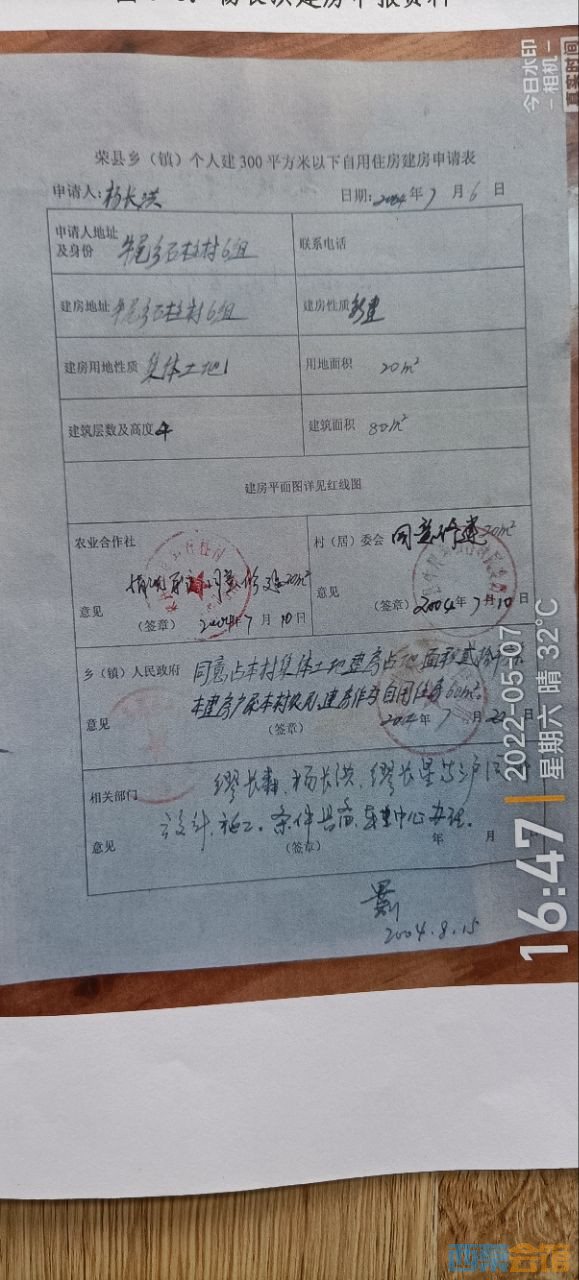 杨长洪建房申报资料
荣县乡（镇）个人建300平方米以下自用住房建房申请表
申请人：杨长洪 日期：2004年7月6日
申请人地址及身份 牛尾乡石柱村6组 联系电话
建房地址 牛尾乡石柱村6组 建房性质 新建
建房用地性质 集体土地 用地面积 20m²
建筑层数及高度 4 建筑面积 80m²
建房平面图详见红线图
农业合作社 村（居）委会 同意修建20m²
同意修建20m²
意见 意见
（签章） 2004年7月10日 （签章） 2004年7月10日
乡（镇）人民政府 同意占本村集体土地建房占地面积贰拾平
本建房户属本村农户，建房作为自用住房60m²。
意见 （签章） 2004年7月22日
相关部门 缪长森、杨长洪、缪长星
设计、施工。条件具备，中心办理。
意见 （签章） 年 月
2004.8.15
今日水印
-相机-
真实时间
16:47
2022-05-07
星期六 晴 32°C
西蜀会馆